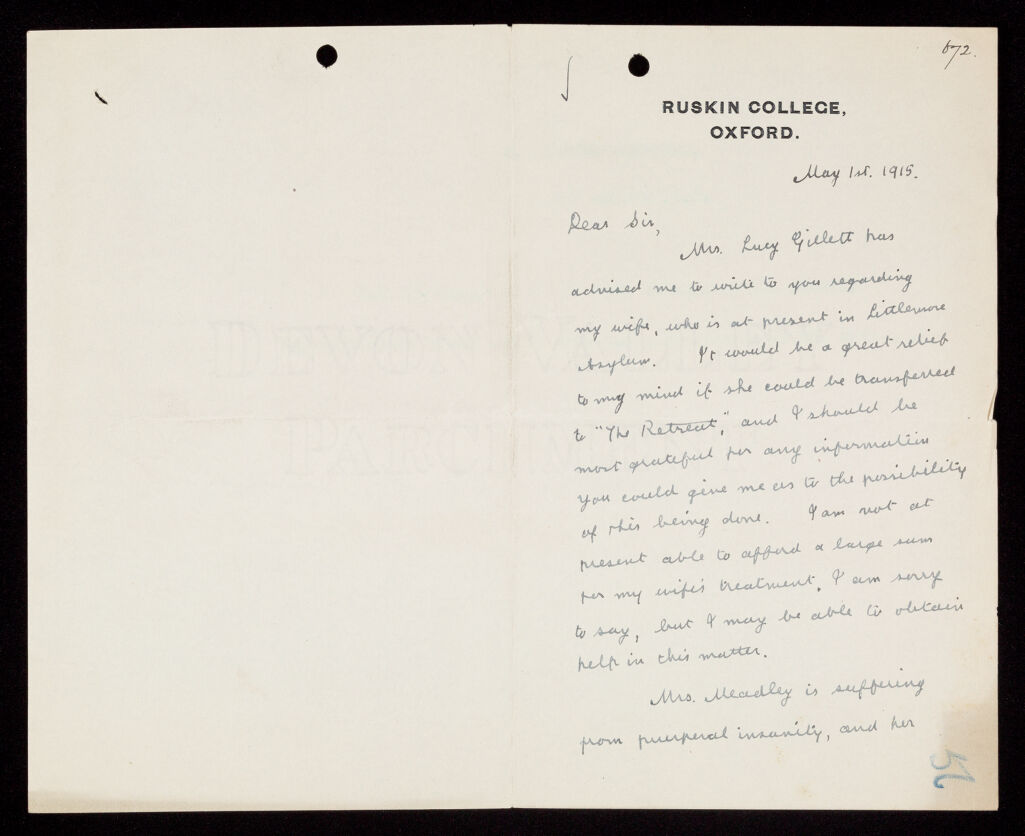 672.
RUSKIN COLLEGE,
OXFORD.
May 1st. 1915.
Dear Sir,
Mrs. Lucy Gillett has
advised me to write to you regarding
my wife, who is at present in Littlemore
Asylum. It would be a great relief
to my mind if she could be transferred
to "The Retreat", and I should be
most grateful for any information
you could give me as to the possibility
of this being done. I am not at
present able to afford a large sum
for my wife's treatment, I am sorry
to say, but I may be able to obtain
help in this matter.
Mrs. Meadley is suffering
from puerperal insanity, and her